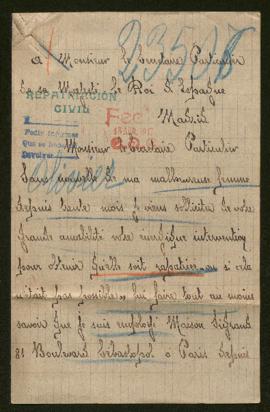 23508
A Monsieur le Secrétaire Particulier
de sa Majesté le Roi d'Espagne
REPATRIACION
CIVIL
Madrid
Pedir informes
Que se haga
Devolver
Monsieur le Secrétaire Particulier
Sans nouvelles de ma malheureuse femme
depuis trente mois je viens solliciter de votre
grande amabilité votre énergique intervention
pour obtenir qu'elle soit rapatriée ou si cela
n'était pas possible, lui faire tout au moins
savoir que je suis employé Maison
81 Boulevard Sébastopol à Paris depuis